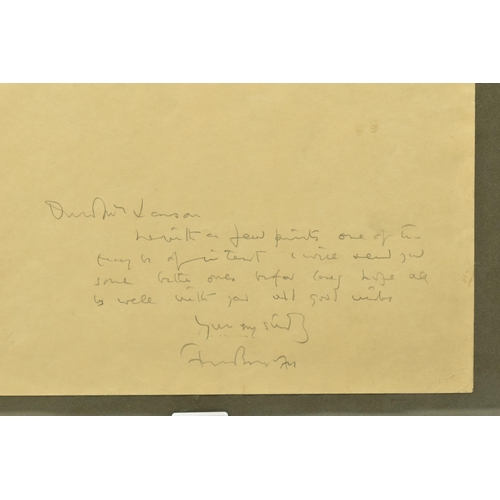 Dear Mr Lawson
herewith a few prints one of two
may be of interest I will send you
some better ones before long hope all
is well with you all good wishes
Yours very sincerely